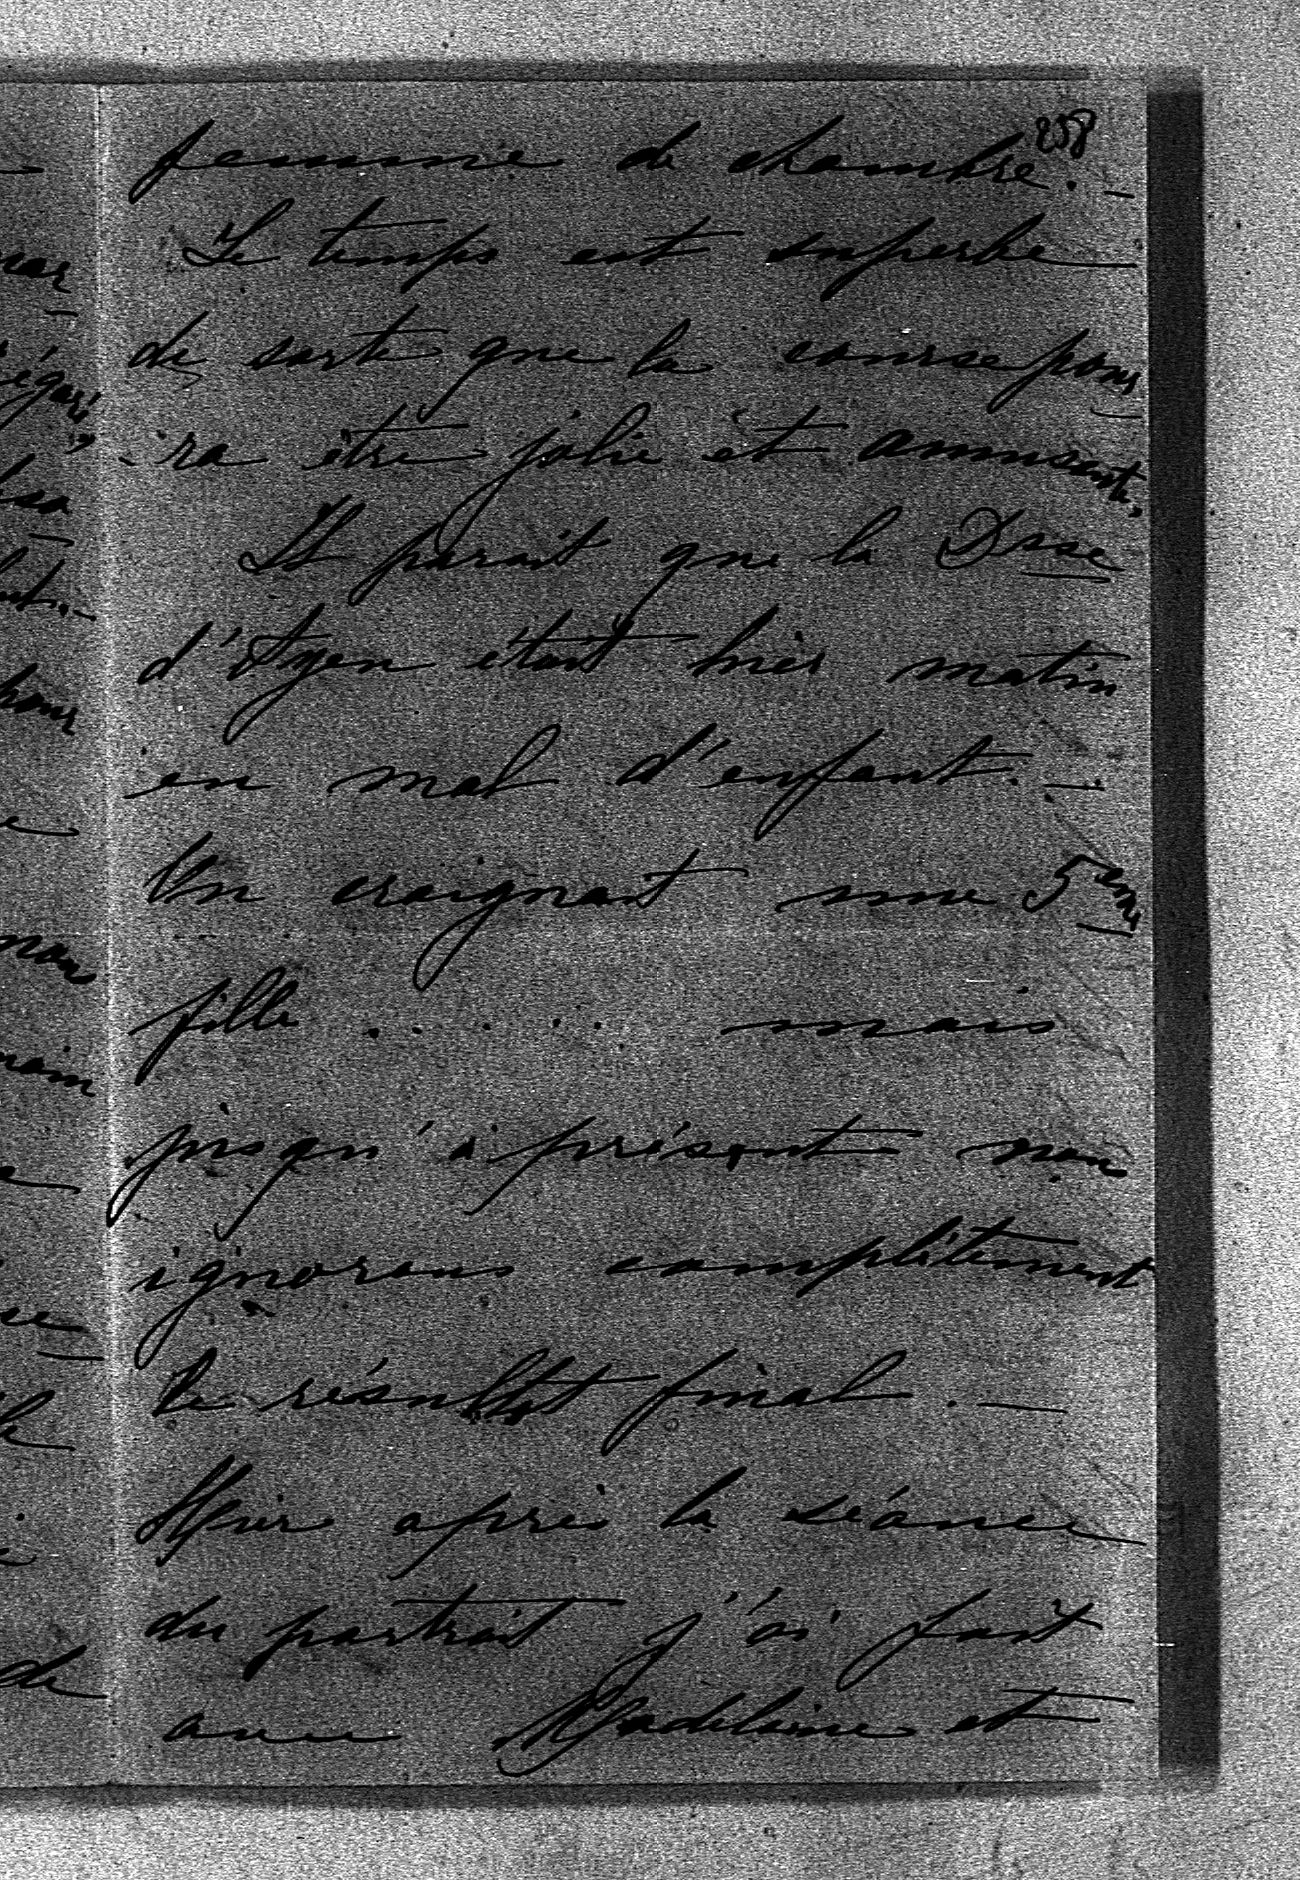 258
femme de chambre. —
Le temps est superbe
de sorte que la course pour
-ra être jolie et amusante,
Il parait que la Dsse
d'Ayen était hier matin
en mal d'enfant. —
On craignait une 5eme
fille ..... mais
jusqu'à présent nous
ignorons complètement
le résultat final. —
Hier après la séance
du portrait j'ai fait
avec Madelaine et